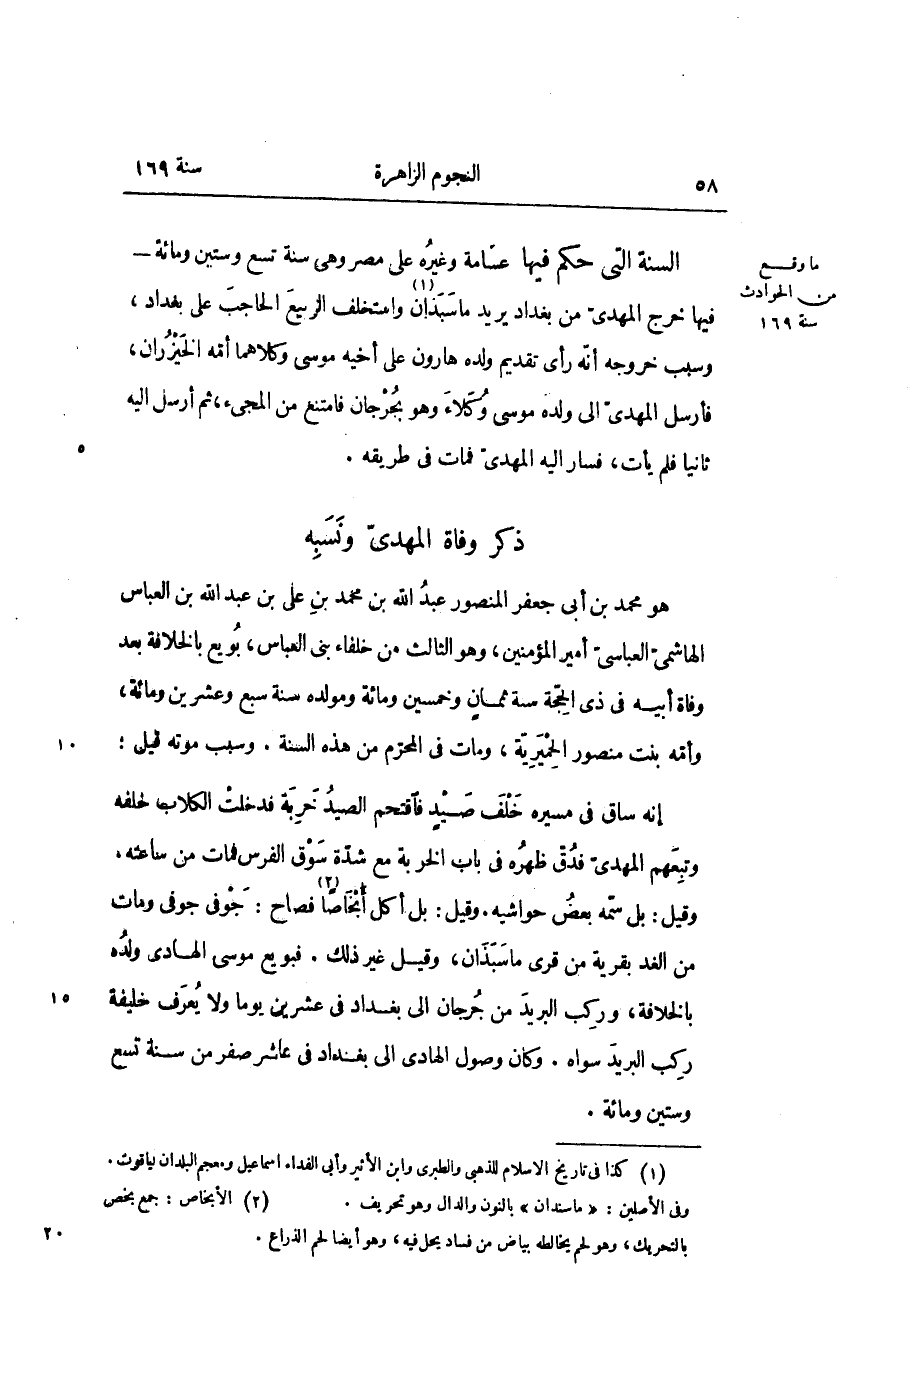 ٥٨ النجوم الزاهرة سنة ١٦٩
ما وقع
من الحوادث
سنة ١٦٩
السنة التى حكم فيها عسّامة وغيرُه على مصر وهى سنة تسع وستين ومائة —
فيها خرج المهدىّ من بغداد يريد ماسَبَذان (١) واستخلف الربيعَ الحاجبَ على بغداد ،
وسبب خروجه أنّه رأى تقديم ولده هارون على أخيه موسى وكلاهما أمّه الخَيْزُران،
فأرسل المهدىّ الى ولده موسى وُكَلاءَ وهو بجُرْجان فامتنع من المجىء، ثم أرسل اليه
٥ ثانيا فلم يأت، فسار اليه المهدىّ فمات فى طريقه .
ذكر وفاة المهدىّ ونَسَبِه
هو محمد بن أبى جعفر المنصور عبدُ الله بن محمد بنِ على بن عبد الله بن العباس
الهاشمىّ العباسىّ أمير المؤمنين، وهو الثالث من خلفاء بنى العباس، بُويع بالخلافة بعد
وفاة أبيه فى ذى الحِجّة سنة ثمانٍ وخمسين ومائة ومولده سنة سبع وعشرين ومائة،
١٠ وأمّه بنت منصور الحِمْيَرِيّة ، ومات فى المحرّم من هذه السنة . وسبب موته قيل :
إنه ساق فى مسيره خَلْفَ صَيْدٍ فآقتحم الصيدُ خَرِبَة فدخلتْ الكلاب خلفه
وتبِعَهم المهدىّ فدُقّ ظهرُه فى باب الخربة مع شدّة سَوْق الفرس فمات من ساعته .
وقيل: بل سمّه بعضُ حواشيه . وقيل: بل أكل أَبْخَاصًا (٢) فصاح : جَوْفى جوفى ومات
من الغد بقرية من قرى ماسَبَذَان، وقيل غير ذلك . فبويع موسى الهادى ولدُه
١٥ بالخلافة، وركِب البريدَ من جُرجان الى بغداد فى عشرين يوما ولا يُعرَف خليفة
ركِب البريدَ سواه . وكان وصول الهادى الى بغداد فى عاشر صفر من سنة تسع
وستين ومائة .
(١) كذا فى تاريخ الاسلام للذهبى والطبرى وابن الأثير وأبى الفداء اسماعيل ومعجم البلدان لياقوت .
وفى الأصلين : « ماسندان » بالنون والدال وهو تحريف . (٢) الأبخاص : جمع بخص
٢٠ بالتحريك، وهو لحم يخالطه بياض من فساد يحل فيه، وهو أيضا لحم الذراع .